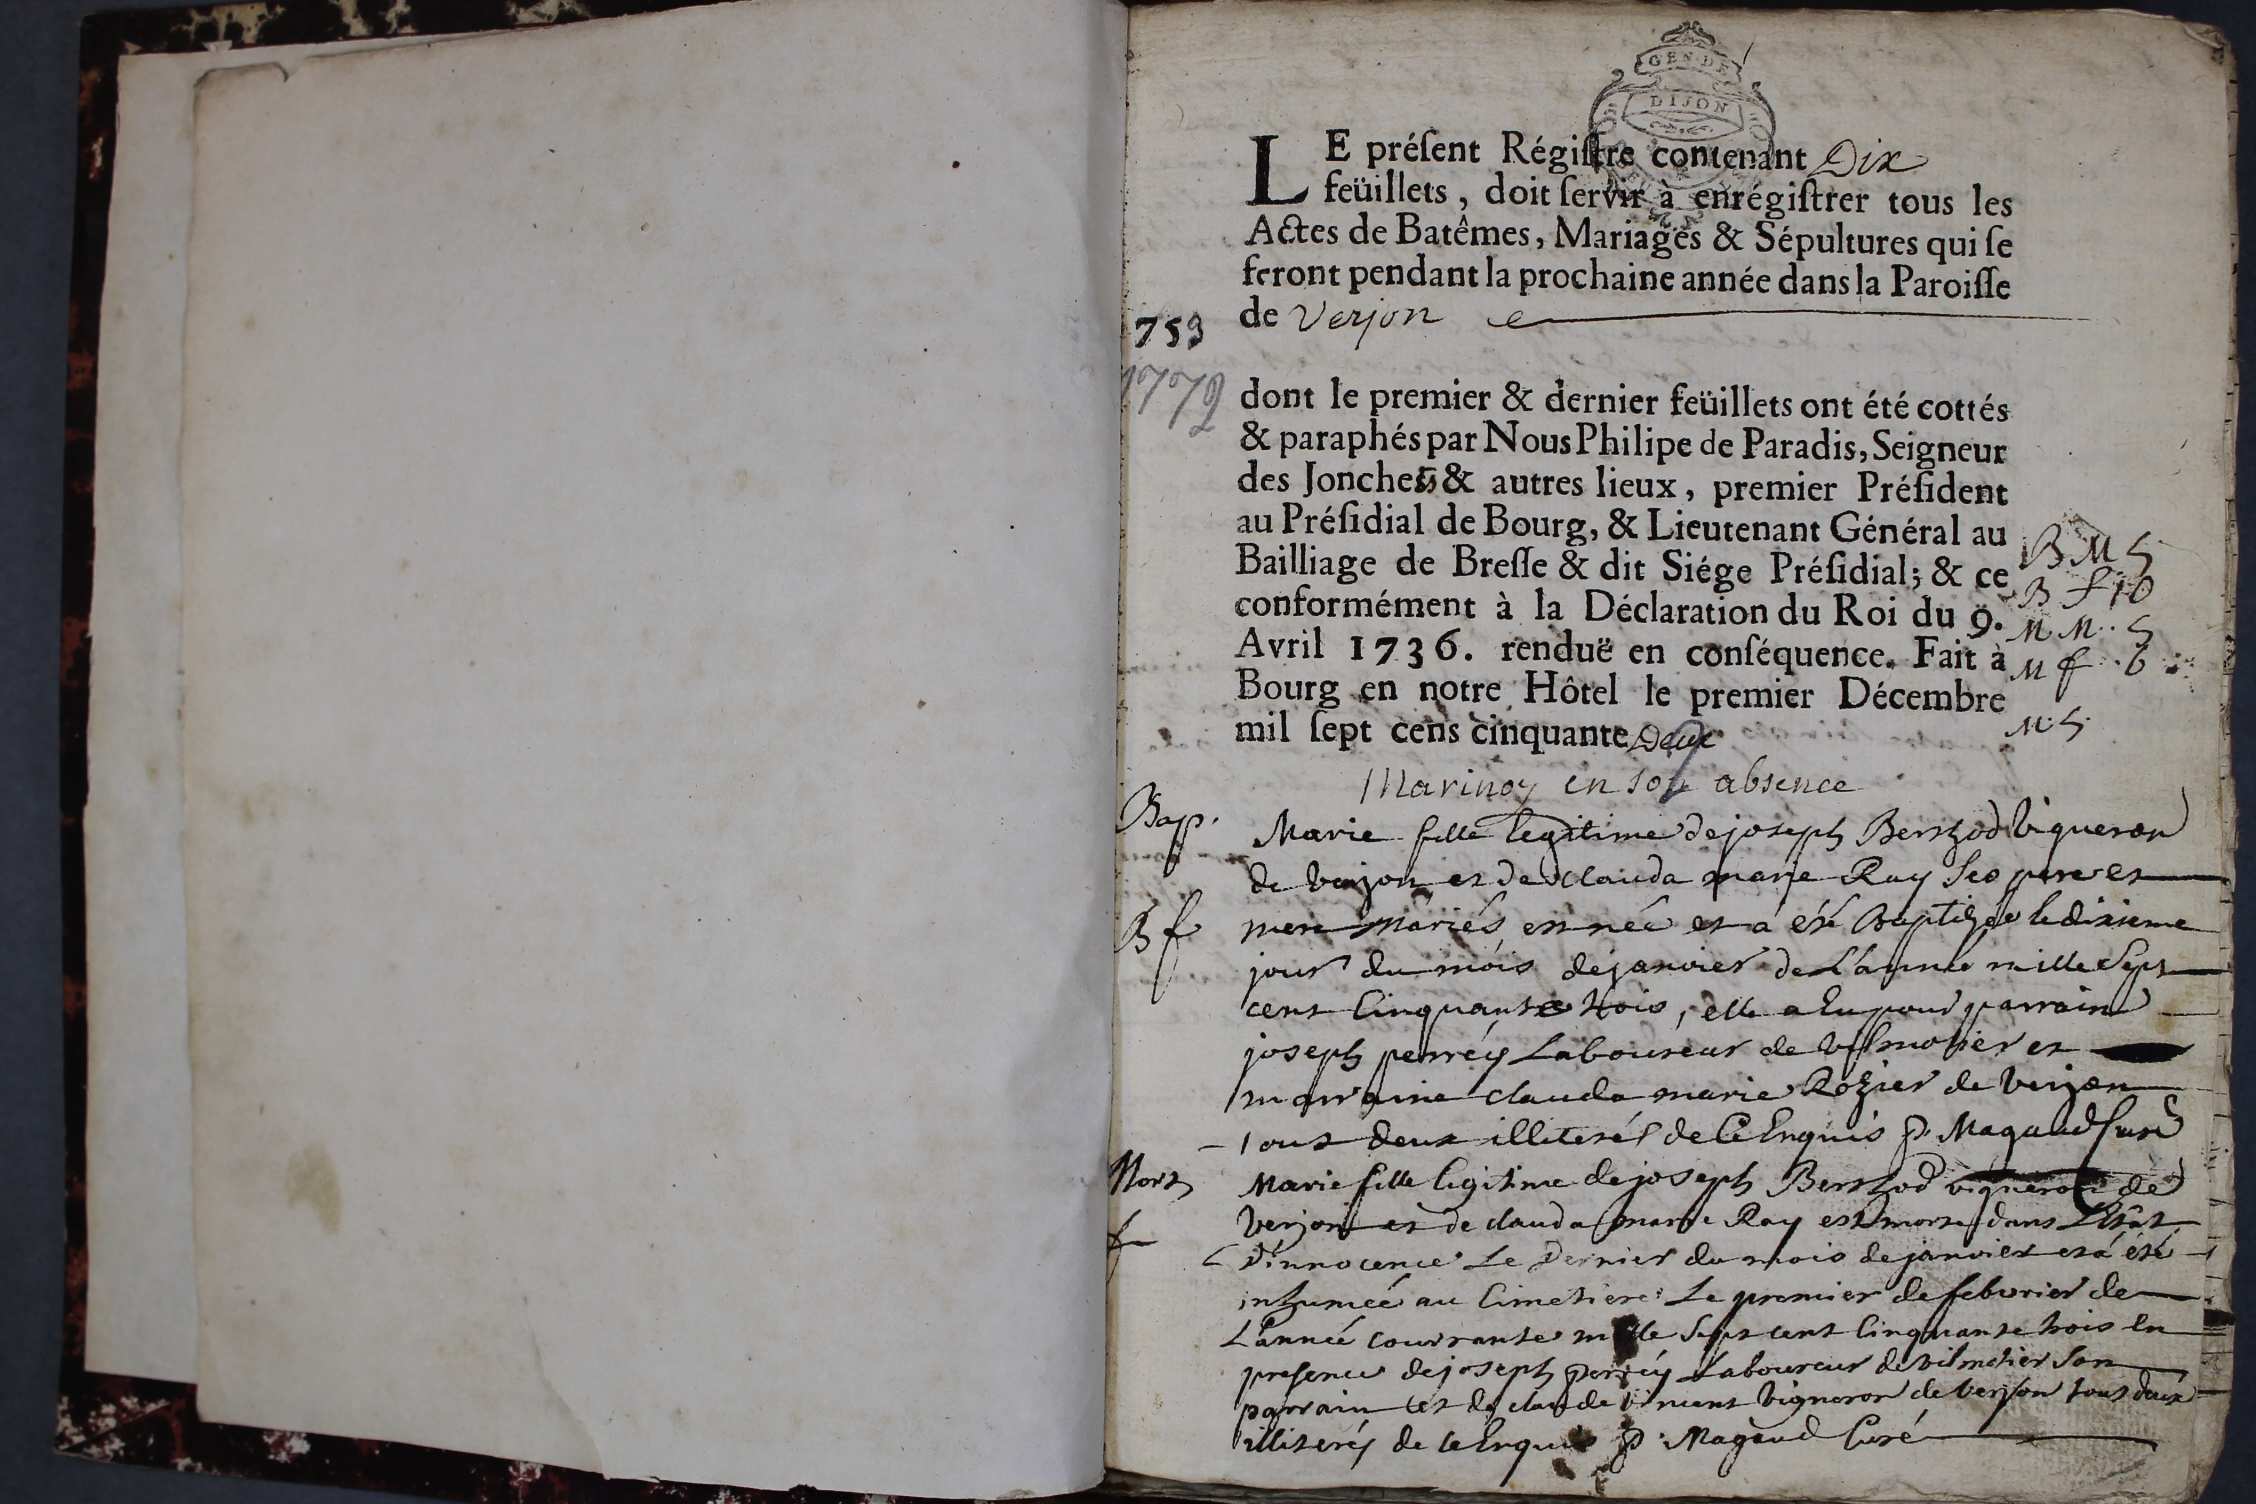 GEN. DE
DIJON
LE préſent Régiſtre contenant Dix
feüillets, doit ſervir à enrégiſtrer tous les
Actes de Batêmes, Mariages & Sépultures qui ſe
feront pendant la prochaine année dans la Paroiſſe
de Verjon
753
dont le premier & dernier feüillets ont été cottés
& paraphés par Nous Philipe de Paradis, Seigneur
des Jonches & autres lieux, premier Préſident
au Préſidial de Bourg, & Lieutenant Général au
Bailliage de Breſſe & dit Siége Préſidial; & ce
conformément à la Déclaration du Roi du 9.
Avril 1736. renduë en conſéquence. Fait à
Bourg en notre Hôtel le premier Décembre
mil ſept cens cinquante Deux
B M 5
B f 10
M M .. 5
M f .. 6
M. 5.
en son absence
Bap.
B f
Marie fille legitime de joseph Berthod vigneron
de verjon et de clauda marie Ray ses pere et
mere mariés est née et a été Baptizée le dixieme
jour du mois de janvier de l'année mille sept
cent cinquante trois, elle a eu pour parrain
joseph perréy Laboureur de vilmotier et
marraine clauda marie Rozier de verjon
tous deux illiterés de ce enquis P. Magaud curé
Mort
f
Marie fille legitime de joseph Berthod vigneron de
verjon et de clauda marie Ray est morte dans l'état
d'innocence le dernier du mois de janvier et a été
inhumée au cimetiere le premier de febvrier de
L'année courrante mille sept cent cinquante trois en
presence de joseph perréy Laboureur de vilmotier son
parrain et de claude vincent vigneron de verjon tous deux
illiterés de ce enquis P. Magaud curé